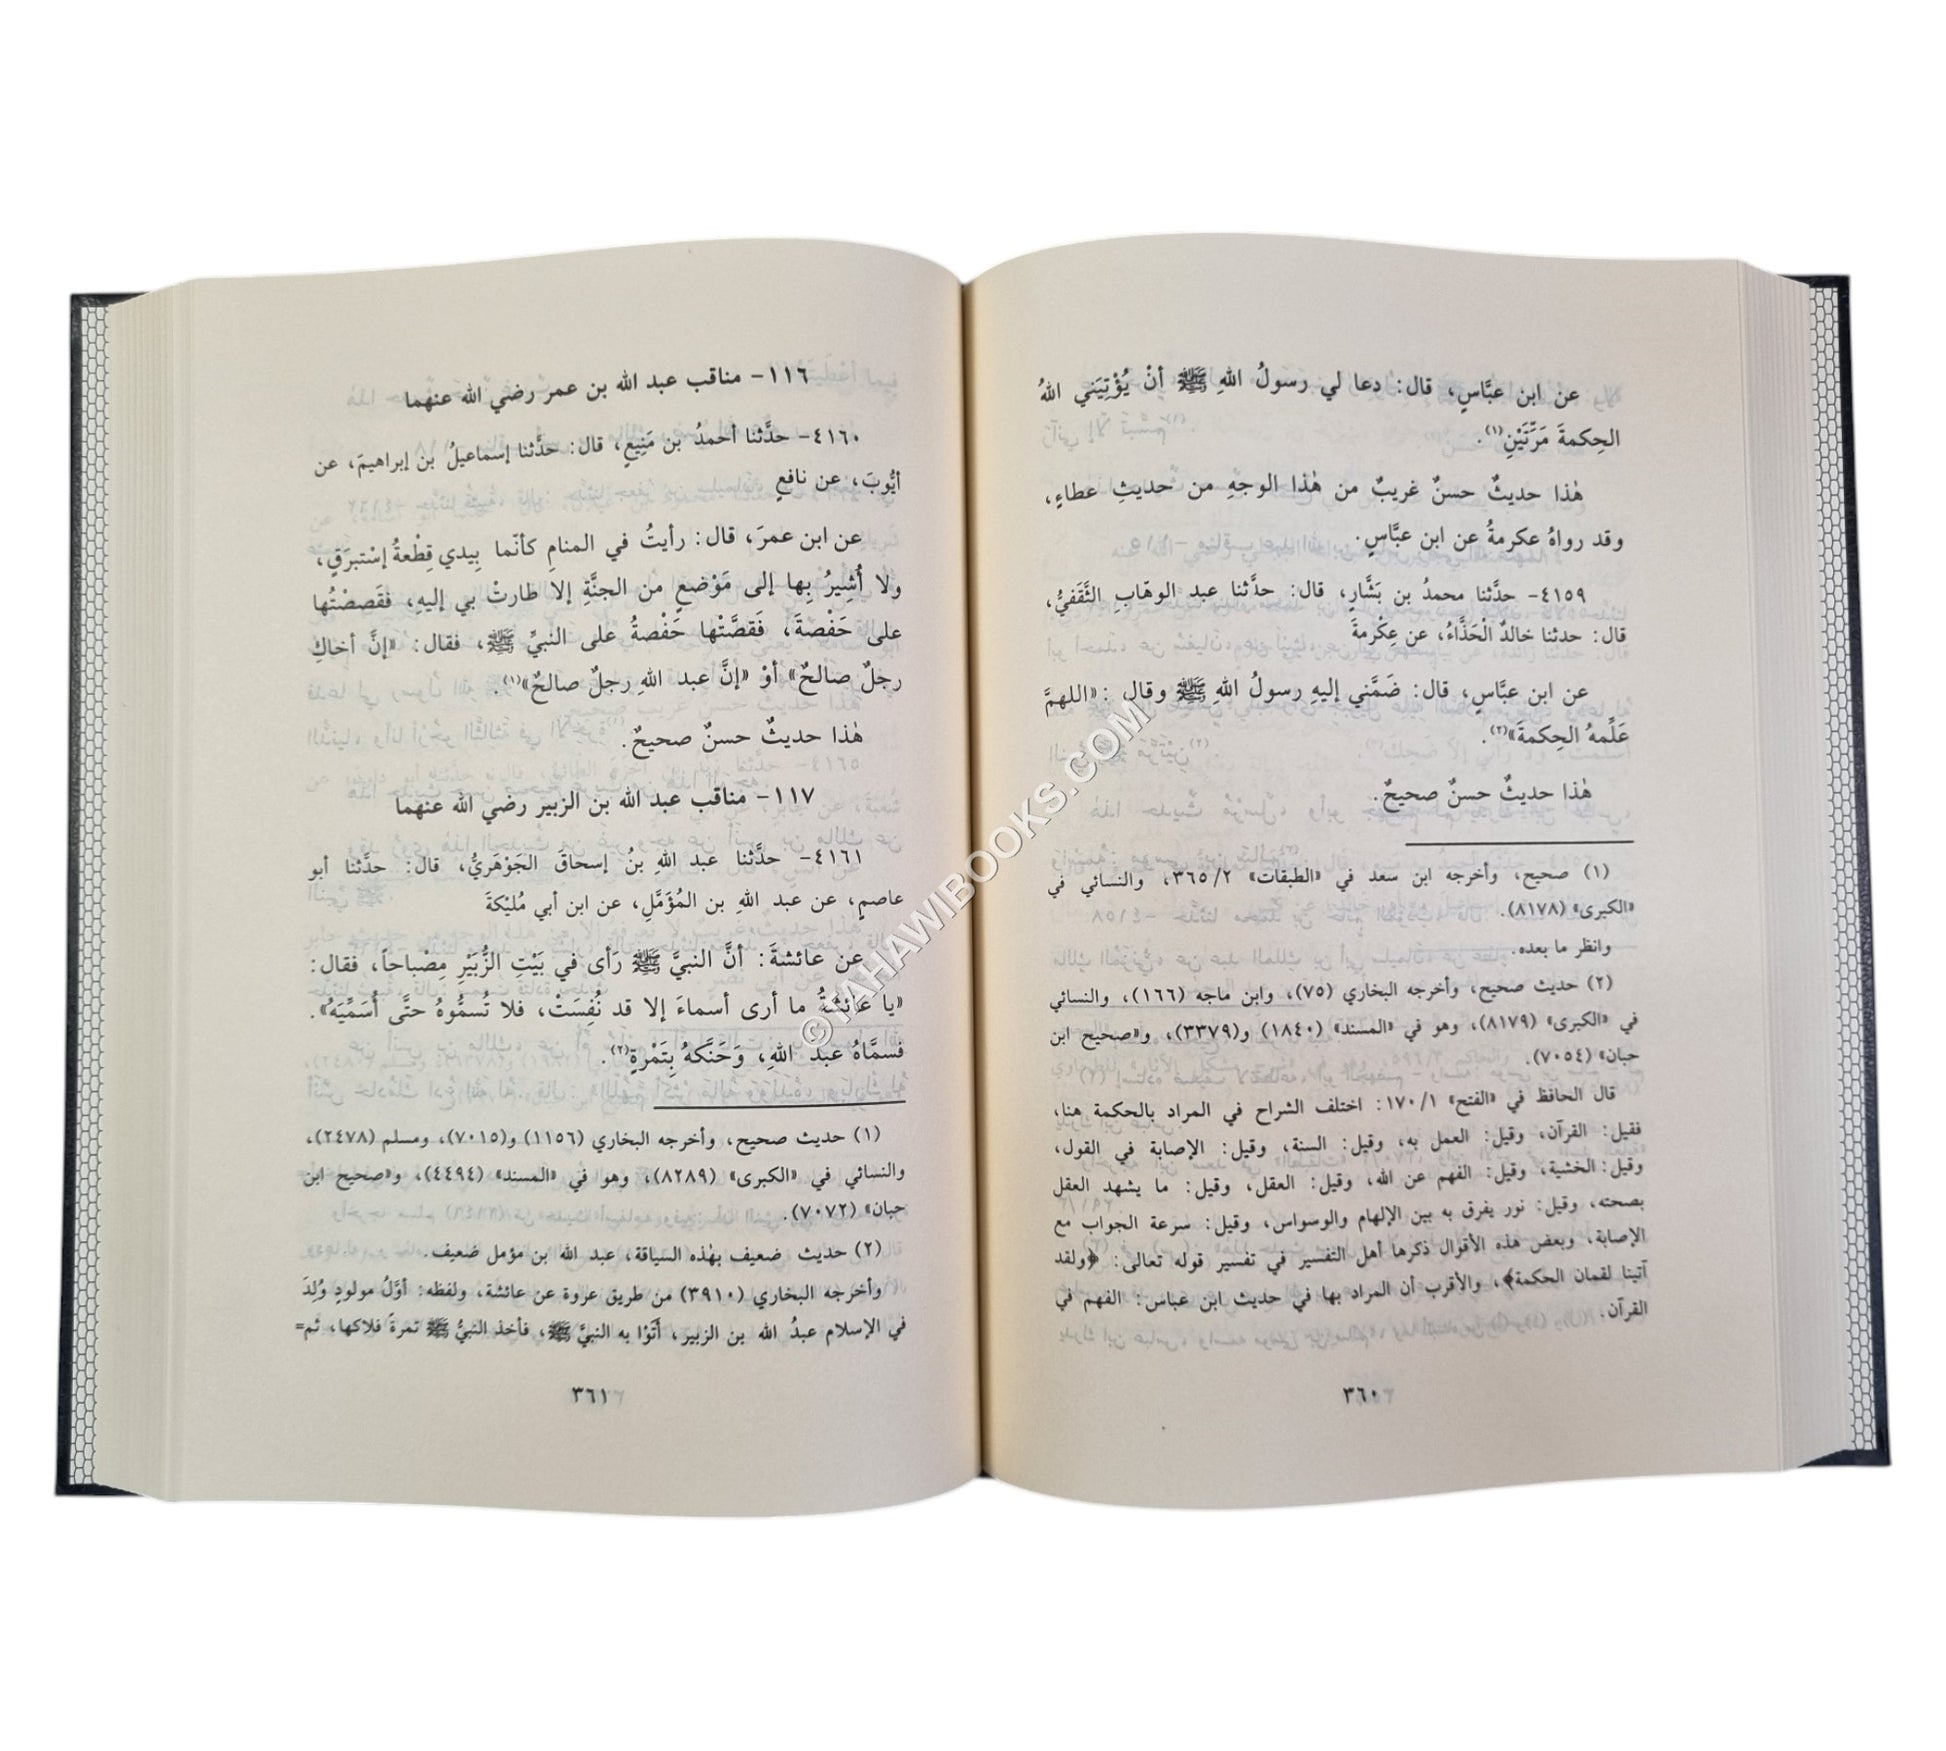 عن ابن عبَّاسٍ، قال: دعا لي رسولُ اللهِ ﷺ أنْ يُؤْتِيَني اللهُ
الحِكمةَ مَرَّتَيْنِ(١).
هٰذا حديثٌ حسنٌ غريبٌ من هٰذا الوجهِ من حديثِ عطاءٍ،
وقد رواهُ عكرمةُ عن ابن عبَّاسٍ.
٤١٥٩- حدَّثنا محمدُ بن بَشَّارٍ، قال: حدَّثنا عبد الوهّابِ الثَّقَفيُّ،
قال: حدثنا خالدٌ الْحَذَّاءُ، عن عِكْرِمةَ
عن ابن عبَّاسٍ، قال: ضَمَّني إليهِ رسولُ اللهِ ﷺ وقال: «اللهمَّ
عَلِّمهُ الحِكمةَ»(٢).
هٰذا حديثٌ حسنٌ صحيحٌ.
(١) صحيح، وأخرجه ابن سعد في «الطبقات» ٢/ ٣٦٥، والنسائي في
«الكبرى» (٨١٧٨).
وانظر ما بعده.
(٢) حديث صحيح، وأخرجه البخاري (٧٥)، وابن ماجه (١٦٦)، والنسائي
في «الكبرى» (٨١٧٩)، وهو في «المسند» (١٨٤٠) و(٣٣٧٩)، و«صحيح ابن
حبان» (٧٠٥٤).
قال الحافظ في «الفتح» ١/ ١٧٠: اختلف الشراح في المراد بالحكمة هنا،
فقيل: القرآن، وقيل: العمل به، وقيل: السنة، وقيل: الإصابة في القول،
وقيل: الخشية، وقيل: الفهم عن الله، وقيل: العقل، وقيل: ما يشهد العقل
بصحته، وقيل: نور يفرق به بين الإلهام والوسواس، وقيل: سرعة الجواب مع
الإصابة، وبعض هذه الأقوال ذكرها أهل التفسير في تفسير قوله تعالى: ﴿ولقد
آتينا لقمان الحكمة﴾، والأقرب أن المراد بها في حديث ابن عباس: الفهم في
القرآن.
٣٦٠
١١٦- مناقب عبد الله بن عمر رضي الله عنهما
٤١٦٠- حدَّثنا أحمدُ بن مَنِيعٍ، قال: حدَّثنا إسماعيلُ بن إبراهيمَ، عن
أيُّوبَ، عن نافعٍ
عن ابن عمرَ، قال: رأيتُ في المنامِ كأنّما بِيدي قِطْعةُ إسْتبرَقٍ،
ولا أُشِيرُ بِها إلى مَوْضعٍ من الجنَّةِ إلا طارتْ بي إليهِ، فقَصصْتُها
على حَفْصةَ، فَقصَّتْها حَفْصةُ على النبيِّ ﷺ، فقال: «إنَّ أخاكِ
رجلٌ صالحٌ» أوْ «إنَّ عبد اللهِ رجلٌ صالحٌ»(١).
هٰذا حديثٌ حسنٌ صحيحٌ.
١١٧- مناقب عبد الله بن الزبير رضي الله عنهما
٤١٦١- حدَّثنا عبد اللهِ بنُ إسحاقَ الجَوْهَريُّ، قال: حدَّثنا أبو
عاصمٍ، عن عبد اللهِ بن المُؤَمَّلِ، عن ابن أبي مُليْكةَ
عن عائشةَ: أنَّ النبيَّ ﷺ رَأى في بَيْتِ الزُّبَيْرِ مِصْباحاً، فقال:
«يا عائشةُ ما أرى أسماءَ إلا قد نُفِسَتْ، فلا تُسمُّوهُ حتَّى أُسَمِّيَهُ».
فسمَّاهُ عبدَ اللهِ، وَحَنَّكهُ بِتَمْرةٍ(٢).
(١) حديث صحيح، وأخرجه البخاري (١١٥٦) و(٧٠١٥)، ومسلم (٢٤٧٨)،
والنسائي في «الكبرى» (٨٢٨٩)، وهو في «المسند» (٤٤٩٤)، و«صحيح ابن
حبان» (٧٠٧٢).
(٢) حديث ضعيف بهٰذه السياقة، عبد الله بن مؤمل ضعيف.
وأخرجه البخاري (٣٩١٠) من طريق عروة عن عائشة، ولفظه: أوَّلُ مولودٍ وُلِدَ
في الإسلام عبدُ الله بن الزبير، أَتَوْا به النبيَّ ﷺ، فأخذ النبيُّ ﷺ تمرةً فلاكها، ثم=
٣٦١
©TAHAWIBOOKS.COM